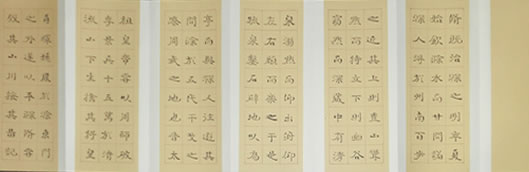 脩既治滁之明年夏
始飲滁水而甘問諸
滁人得於州南百步
之近其上則豐山聳
然而特立下則幽谷
窈然而深藏中有清
泉滃然而仰出俯仰
左右顧而樂之於是
疏泉鑿石闢地以為
亭而與滁人往遊其
間滁於五代干戈之
際用武之地也昔太
祖皇帝嘗以周師破
李景兵十五萬於清
流山下生擒其將皇
甫暉姚鳳於滁東門
之外遂以平滁脩嘗
考其山川按其圖記